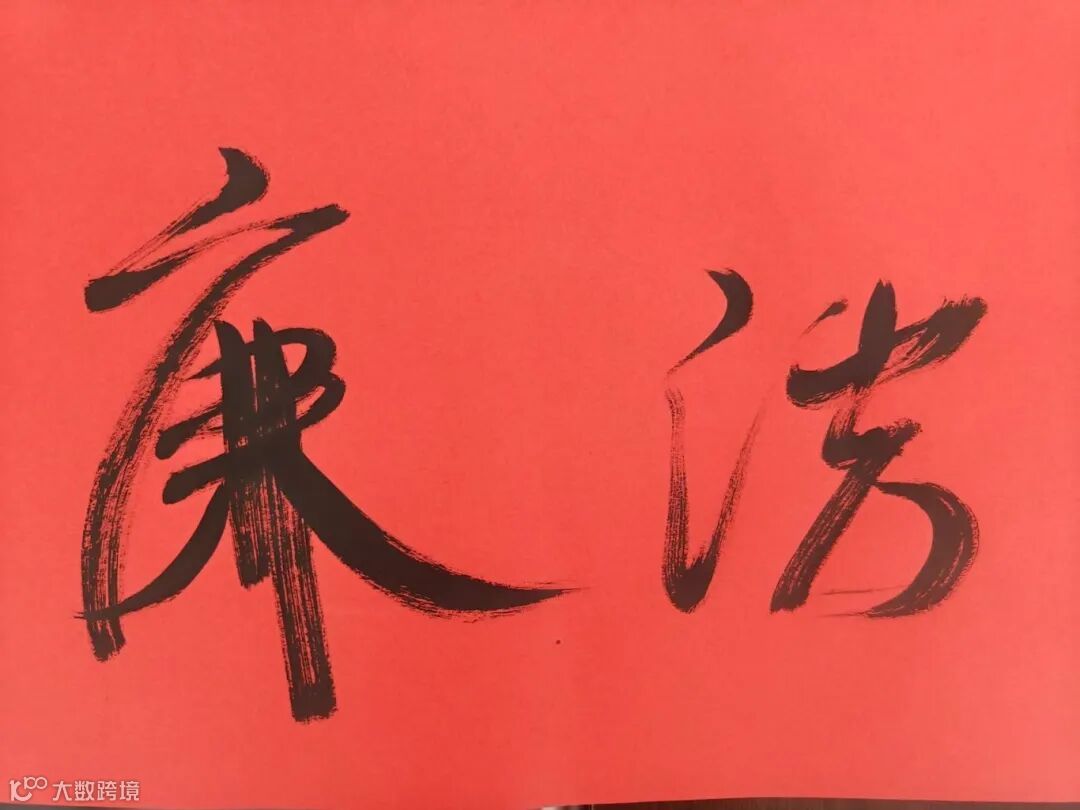 清廉
大数跨境